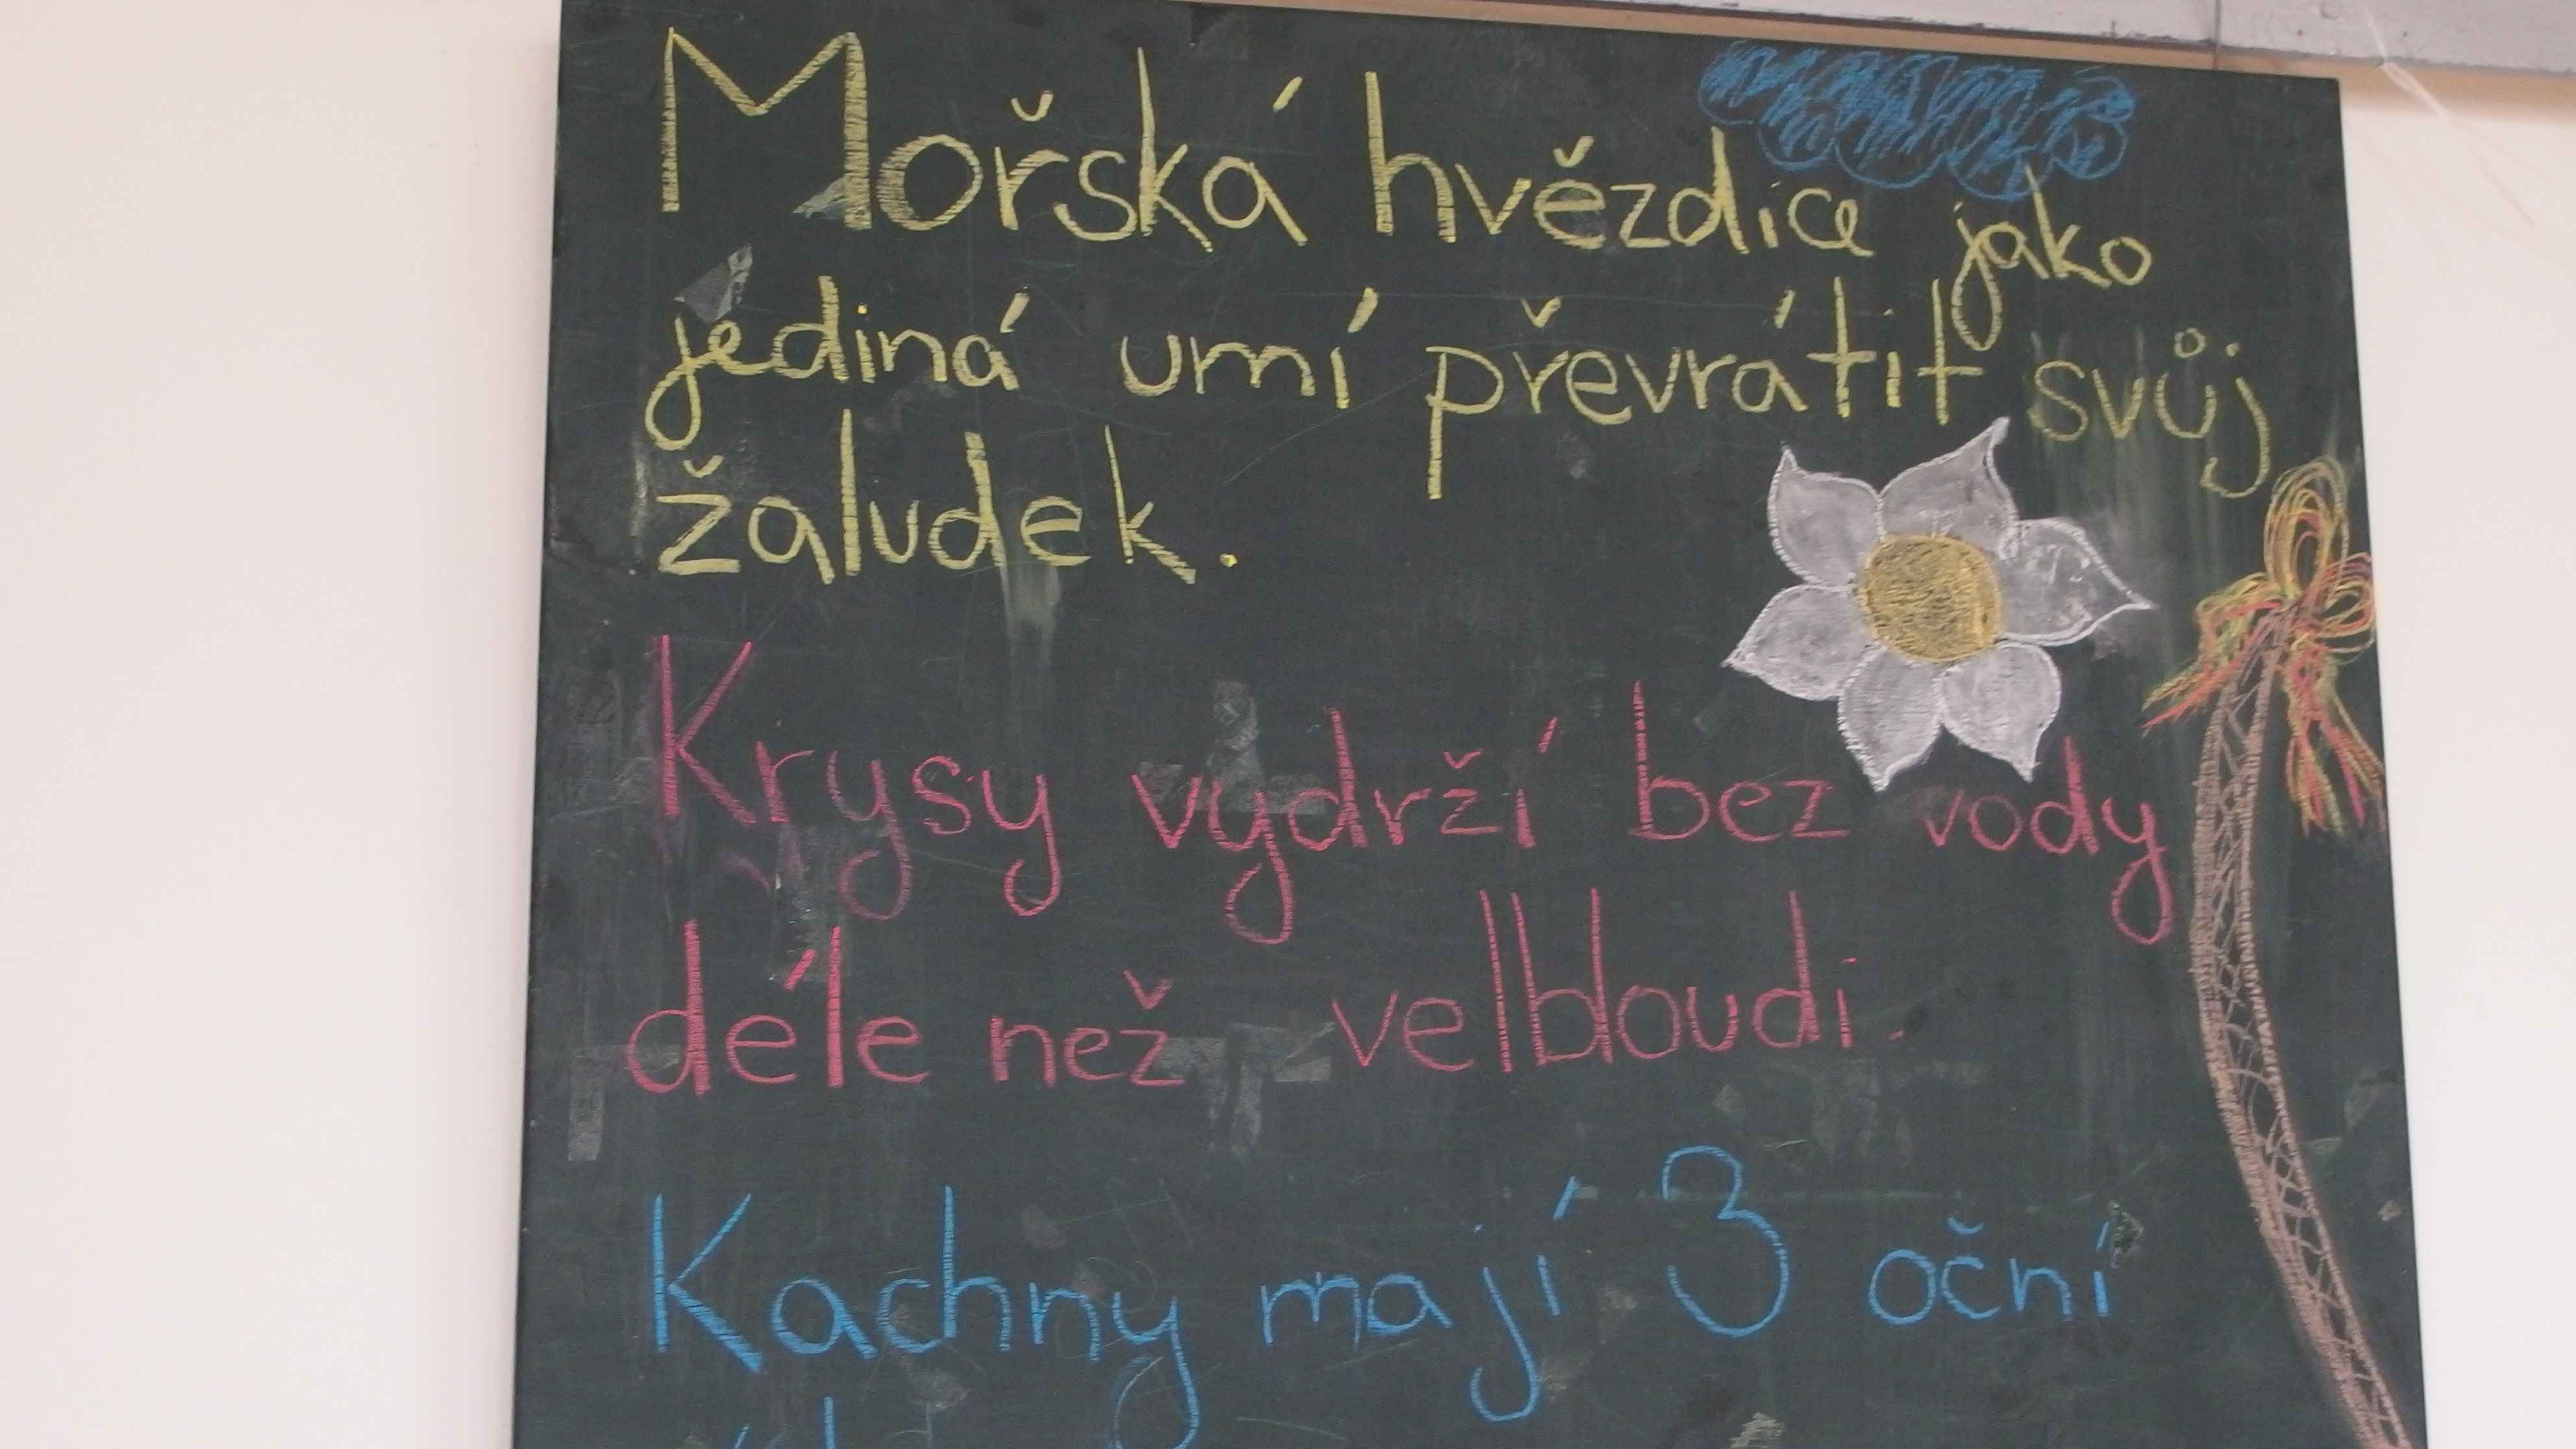 Mořská hvězdice jako
jediná umí převrátit svůj
žaludek.
Krysy vydrží bez vody
déle než velbloudi.
Kachny mají 3 oční